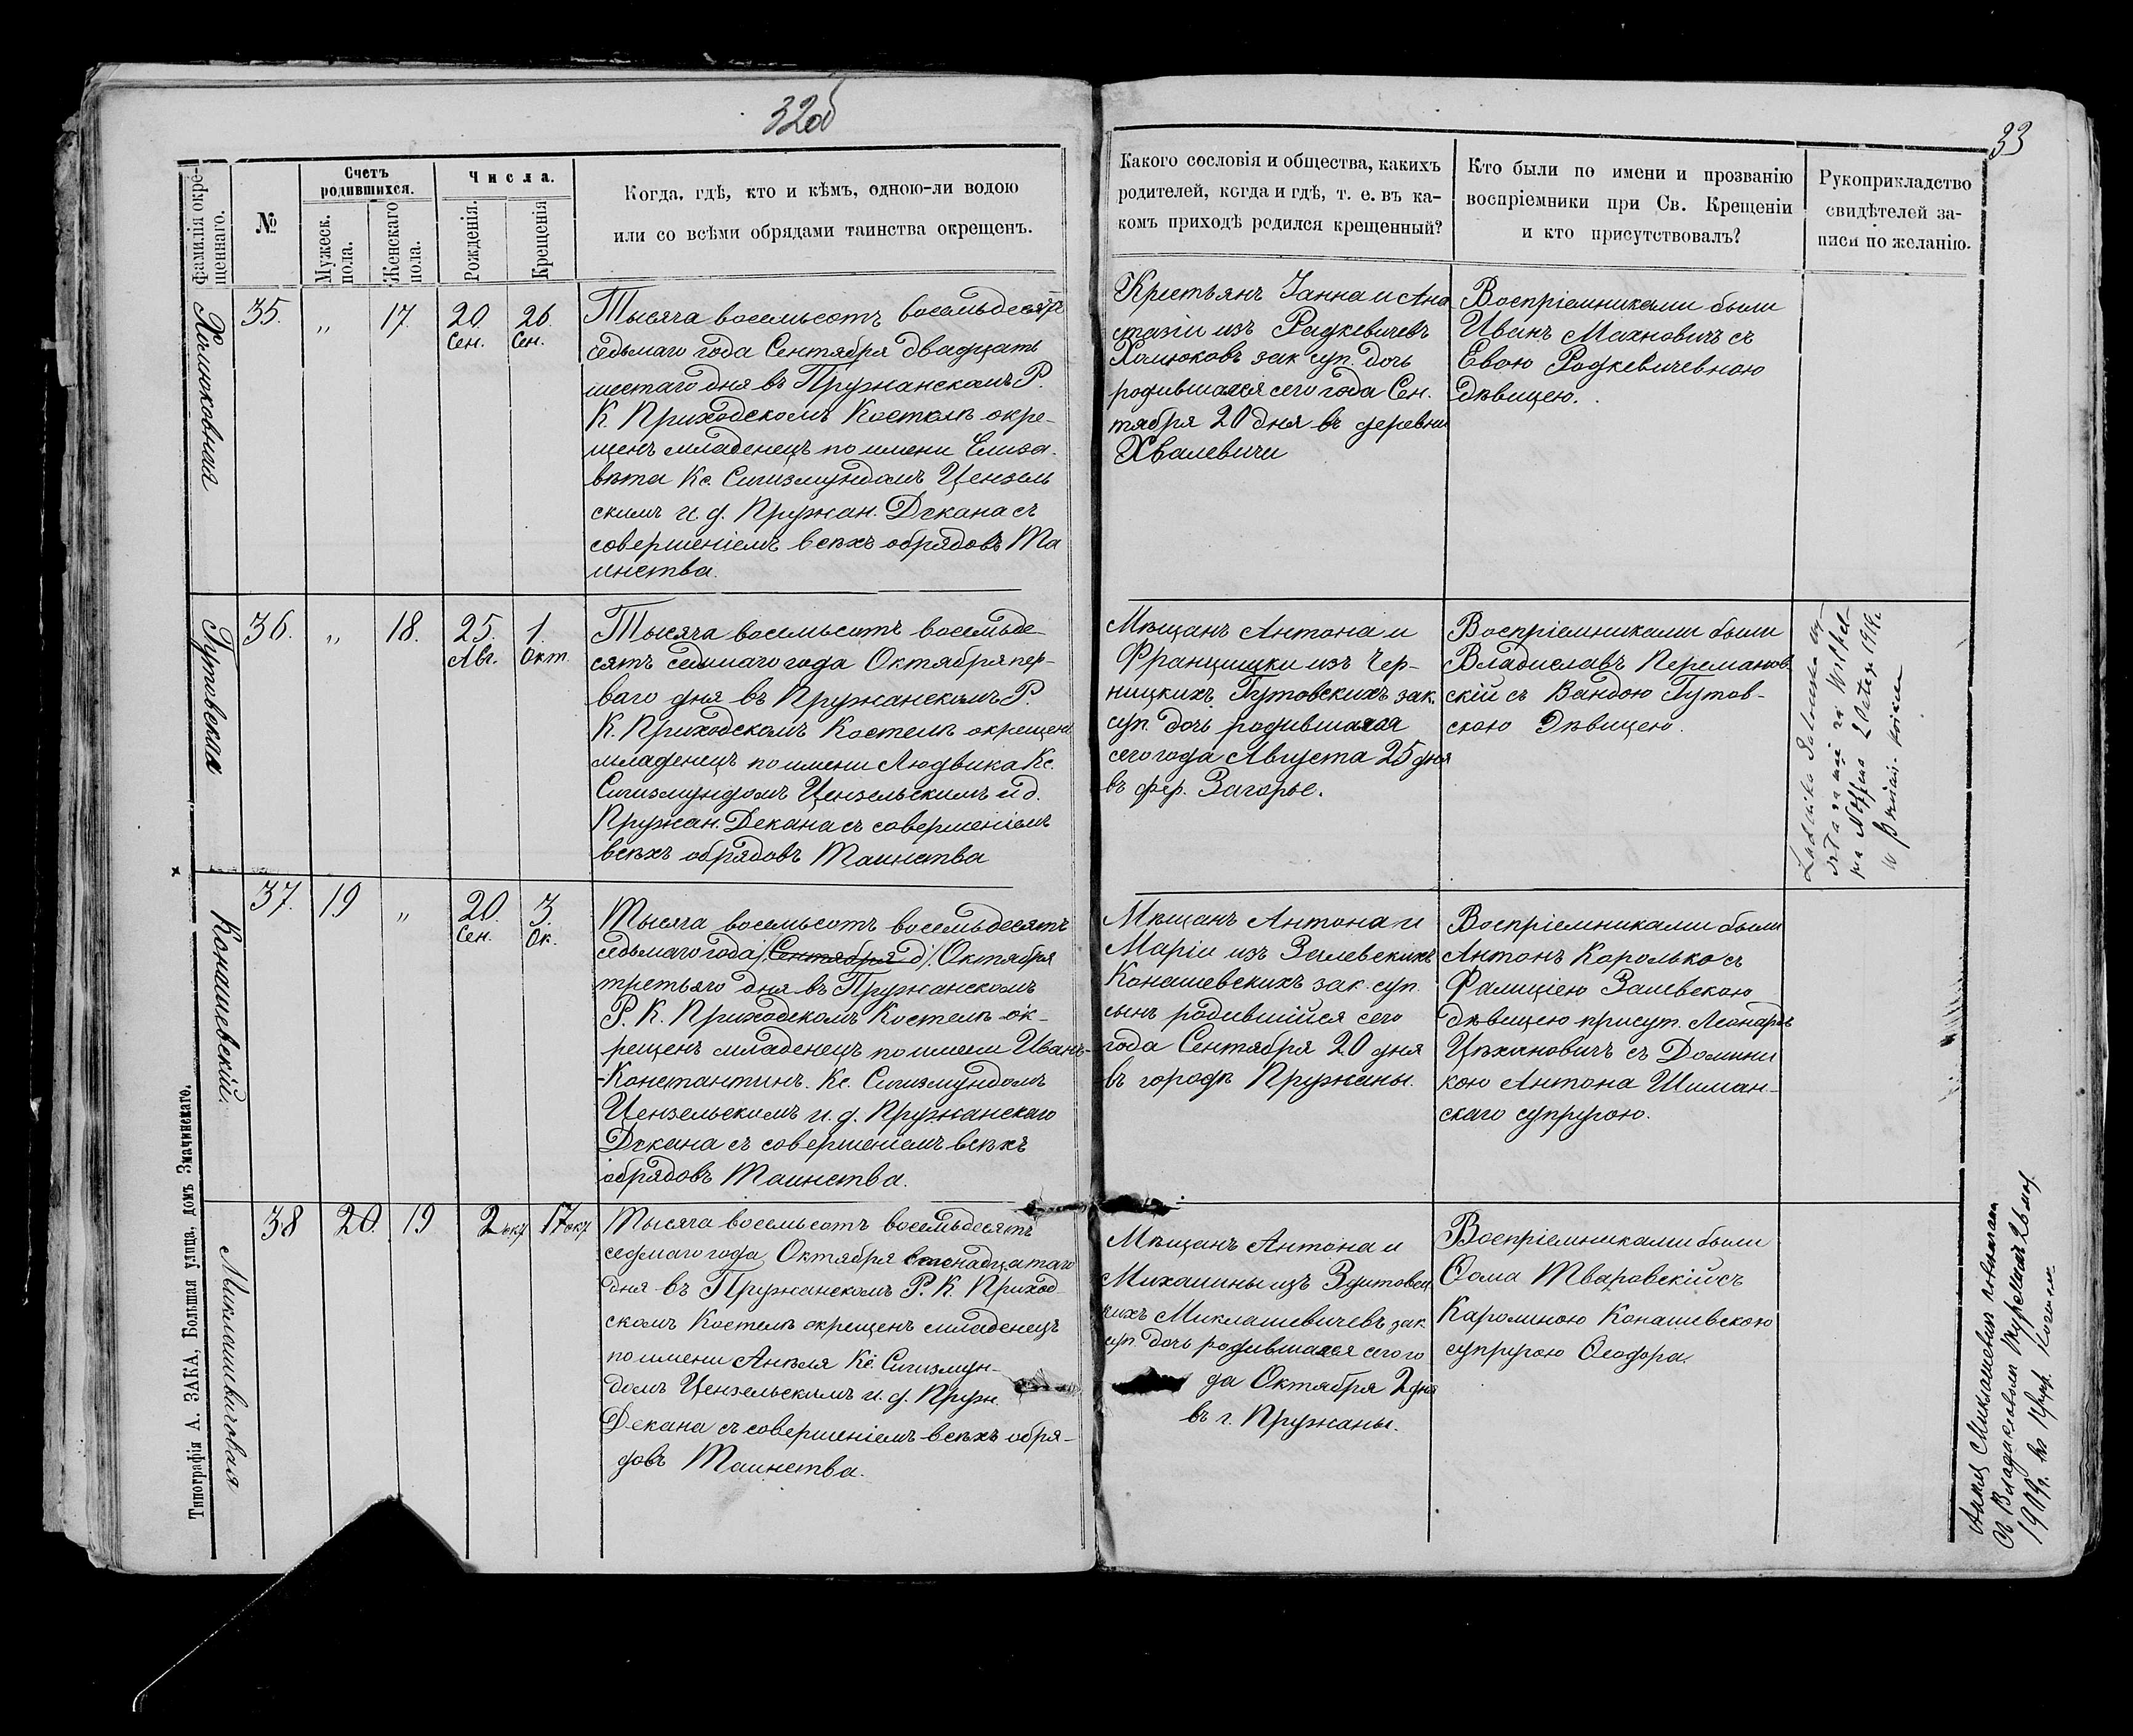 32об
33
Фамилія окре-
щеннаго.
№
Счетъ
родившихся.
Мужеск.
пола.
Женскаго
пола.
Числа.
Рожденія.
Крещенія
Когда, гдѣ, кто и кѣмъ, одною-ли водою
или со всѣми обрядами таинства окрещенъ.
Какого сословія и общества, какихъ
родителей, когда и гдѣ, т. е. въ ка-
комъ приходѣ родился крещенный?
Кто были по имени и прозванію
воспріемники при Св. Крещеніи
и кто присутствовалъ?
Рукоприкладство
свидѣтелей за-
писи по желанію.
Халюковная
35.
„
17.
20.
Сен.
26.
Сен.
Тысяча восемьсотъ восемьдесятъ
седьмаго года Сентября двадцать
шестаго дня въ Пружанскомъ Р.
К. Приходскомъ Костелѣ окре-
щенъ младенецъ по имени Елиза-
вѣта Кс. Сигизмундомъ Цензель
скимъ и. д. Пружан. Декана съ
совершеніемъ всѣхъ обрядовъ Та
инства.
Крестьянъ Іанна и Ана
стазіи изъ Радкевичевъ
Халюковъ зак суп. дочь
родившаяся сего года Сен.
тября 20 дня въ деревни
Хвалевичи
Воспріемниками были
Иванъ Махновичъ съ
Евою Радкевичевною
Дѣвицею.
Гутовская
36.
„
18.
25.
Авг.
1.
Окт.
Тысяча восемьсотъ восемьде-
сятъ седмаго года Октября пер-
ваго дня въ Пружанскомъ Р.
К. Приходскомъ Костелѣ окрещенъ
младенецъ по имени Людвика Кс.
Сигизмундомъ Цензельскимъ и д.
Пружан. Декана съ совершеніемъ
всѣхъ обрядовъ Таинства
Мѣщанъ Антона и
Францишки изъ Чер-
ницкихъ Гутовскихъ зак.
суп. дочь родившаяся
сего года Августа 25 дня
въ дер. Загорье.
Воспріемниками были
Владиславъ Перемановъ
скій съ Вандою Гутов-
скою Дѣвицею.
Конашевскій.
37.
19
„
20.
Сен.
3.
Ок.
Тысяча восемьсотъ восемьдесятъ
седьмаго года /Сентября д/. Октября
третьяго дня въ Пружанскомъ
Р. К. Приходскомъ Костелѣ ок-
рещенъ младенецъ по имени Иванъ-
-Константинъ. Кс. Сигизмундомъ
Цензельскимъ и. д. Пружанскаго
Декана съ совершеніемъ всѣхъ
обрядовъ Таинства.
Мѣщанъ Антона и
Маріи изъ Залевскихъ
Конашевскихъ зак. суп.
сынъ родившійся сего
года Сентября 20 дня
въ городѣ Пружаны.
Воспріемниками были
Антонъ Королько съ
Фалиціею Залевскою
дѣвицею присут. Леонардъ
Цѣхановичъ съ Домини
кою Антона Шиман-
скаго супругою.
Миклашевичовая
38
20.
19
2 окт
17 окт
Тысяча восемьсотъ восемьдесятъ
седмаго года Октября семнадцатаго
дня въ Пружанскомъ Р. К. Приход
скомъ Костелѣ окрещенъ младенецъ
по имени Анѣля Кс. Сигизмун-
домъ Цензельскимъ и. д. Пруж.
Декана съ совершеніемъ всѣхъ обря-
довъ Таинства.
Мѣщанъ Антона и
Михалины изъ Зд
кихъ Миклашевичевъ зак.
суп. дочь родившаяся сего го
да Октября 2 дня
въ г. Пружаны.
Воспріемниками были
Ѳома Тваровскій съ
Каролиною Конашевскою
супругою Ѳеодора.
Анеля Миклашевичъ повѣнчана
съ Владиславомъ
1909 г. въ Пруж. Костелѣ
Типографія А. ЗАКА, Большая улица, домъ Значинскаго.